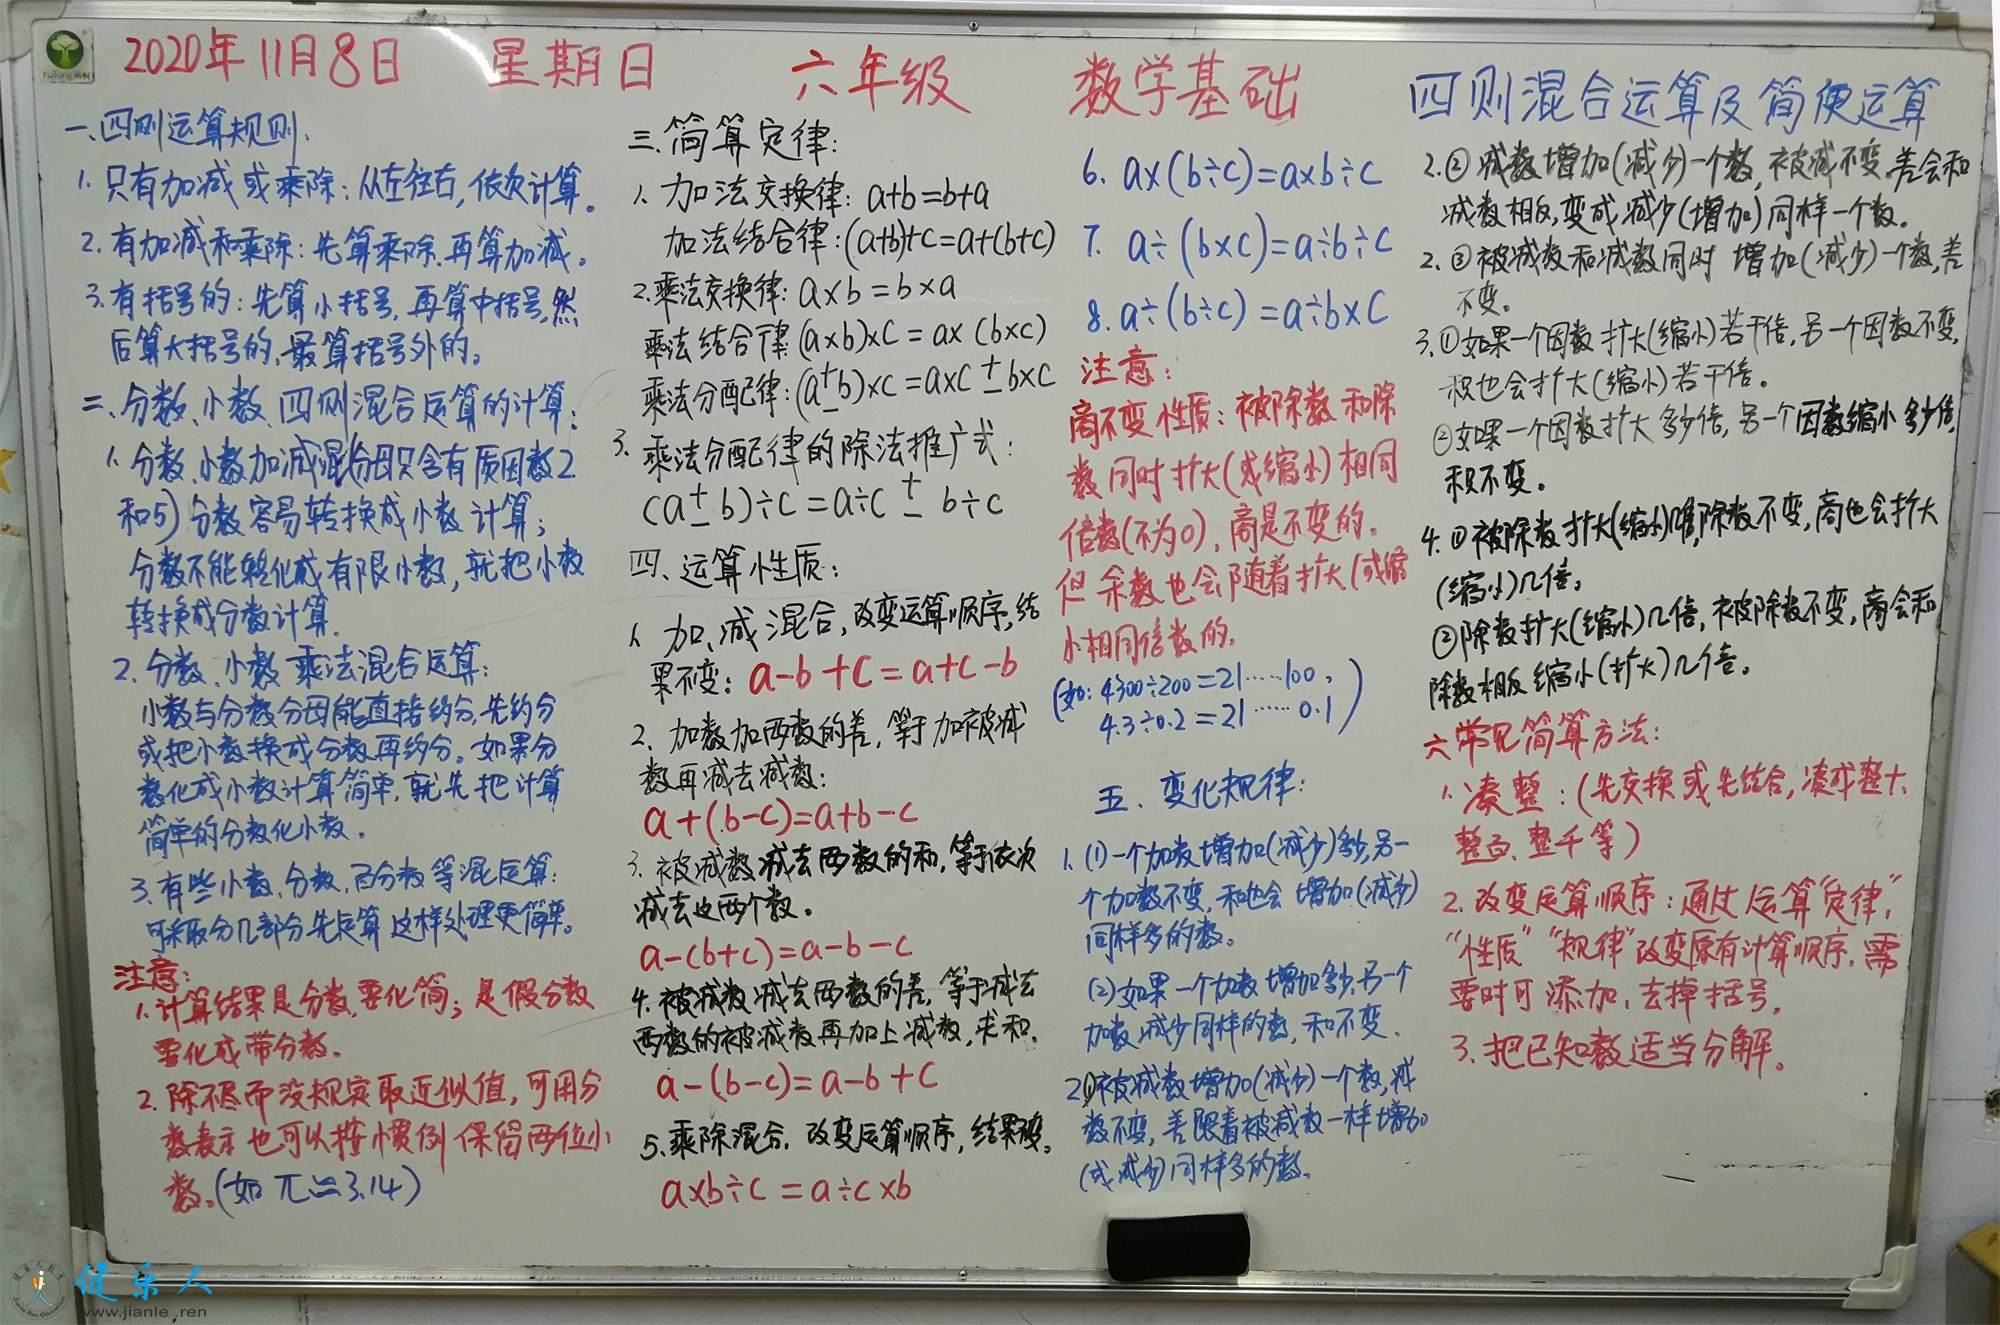 2020年11月8日 星期日 六年级 数学基础 四则混合运算及简便运算
一、四则运算规则:
1. 只有加减或乘除:从左往右,依次计算。
2. 有加减和乘除:先算乘除,再算加减。
3. 有括号的:先算小括号,再算中括号,然
后算大括号的,最算括号外的。
二、分数、小数、四则混合运算的计算:
1. 分数、小数加减混(分母只含有质因数2
和5)分数容易转换成小数计算;
分数不能转化成有限小数,就把小数
转换成分数计算.
2. 分数、小数乘法混合运算:
小数与分数分母能直接约分,先约分
或把小数换成分数再约分。如果分
数化成小数计算简单,就先把计算
简单的分数化小数。
3. 有些小数、分数、百分数等混运算:
可采取分几部分先运算 这样处理更简单。
注意:
1. 计算结果是分数,要化简;是假分数
要化成带分数.
2. 除不尽而没规定取近似值,可用分
数表示 也可以按惯例 保留两位小
数。(如 π≈3.14)
三、简算定律:
1. 加法交换律: a+b=b+a
加法结合律:(a+b)+c=a+(b+c)
2. 乘法交换律: a×b=b×a
乘法结合律 (a×b)×c=a×(b×c)
乘法分配律:(a±b)×c=a×c±b×c
3. 乘法分配律的除法推广式:
(a±b)÷c=a÷c±b÷c
四、运算性质:
1. 加、减混合,改变运算顺序,结
果不变: a-b+c=a+c-b
2. 加数加两数的差,等于加被减
数再减去减数:
a+(b-c)=a+b-c
3. 被减数减去两数的和,等于依次
减去这两个数。
a-(b+c)=a-b-c
4. 被减数减去两数的差,等于减去
两数的被减数再加上减数,求和.
a-(b-c)=a-b+c
5. 乘除混合,改变运算顺序,结果不变。
a×b÷c=a÷c×b
6. a×(b÷c)=a×b÷c
7. a÷(b×c)=a÷b÷c
8. a÷(b÷c)=a÷b×c
注意:
商不变性质:被除数和除
数同时扩大(或缩小)相同
倍数(不为0),商是不变的。
但余数也会随着扩大(或缩
小相同倍数的.
(如: 4300÷200=21……100,
4.3÷0.2=21……0.1)
五、变化规律:
1. (1)一个加数增加(减少)多少,另一
个加数不变,和也会增加(减少)
同样多的数。
(2)如果一个加数增加多少,另一个
加数减少同样的数,和不变.
2.①被减数增加(减少)一个数,减
数不变,差跟着被减数一样增加
(或减少)同样多的数.
2.② 减数增加(减少)一个数,被减不变,差会和
减数相反,变成减少(增加)同样一个数。
2.③被减数和减数同时 增加(减少)一个数,差
不变。
3.①如果一个因数扩大(缩小)若干倍,另一个因数不变,
积也会扩大(缩小)若干倍。
②如果一个因数扩大多少倍,另一个因数缩小多少倍,
积不变。
4.①被除数扩大(缩小)几倍,除数不变,商也会扩大
(缩小)几倍。
②除数扩大(缩小)几倍,被除数不变,商会和
除数相反缩小(扩大)几倍。
六 常见简算方法:
1. 凑整:(先交换或先结合,凑成整十、
整百、整千等)
2. 改变运算顺序:通过运算“定律”,
“性质”“规律”改变原有计算顺序,需
要时可添加、去掉括号。
3. 把已知数适当分解。
健乐人
www.jianle.ren